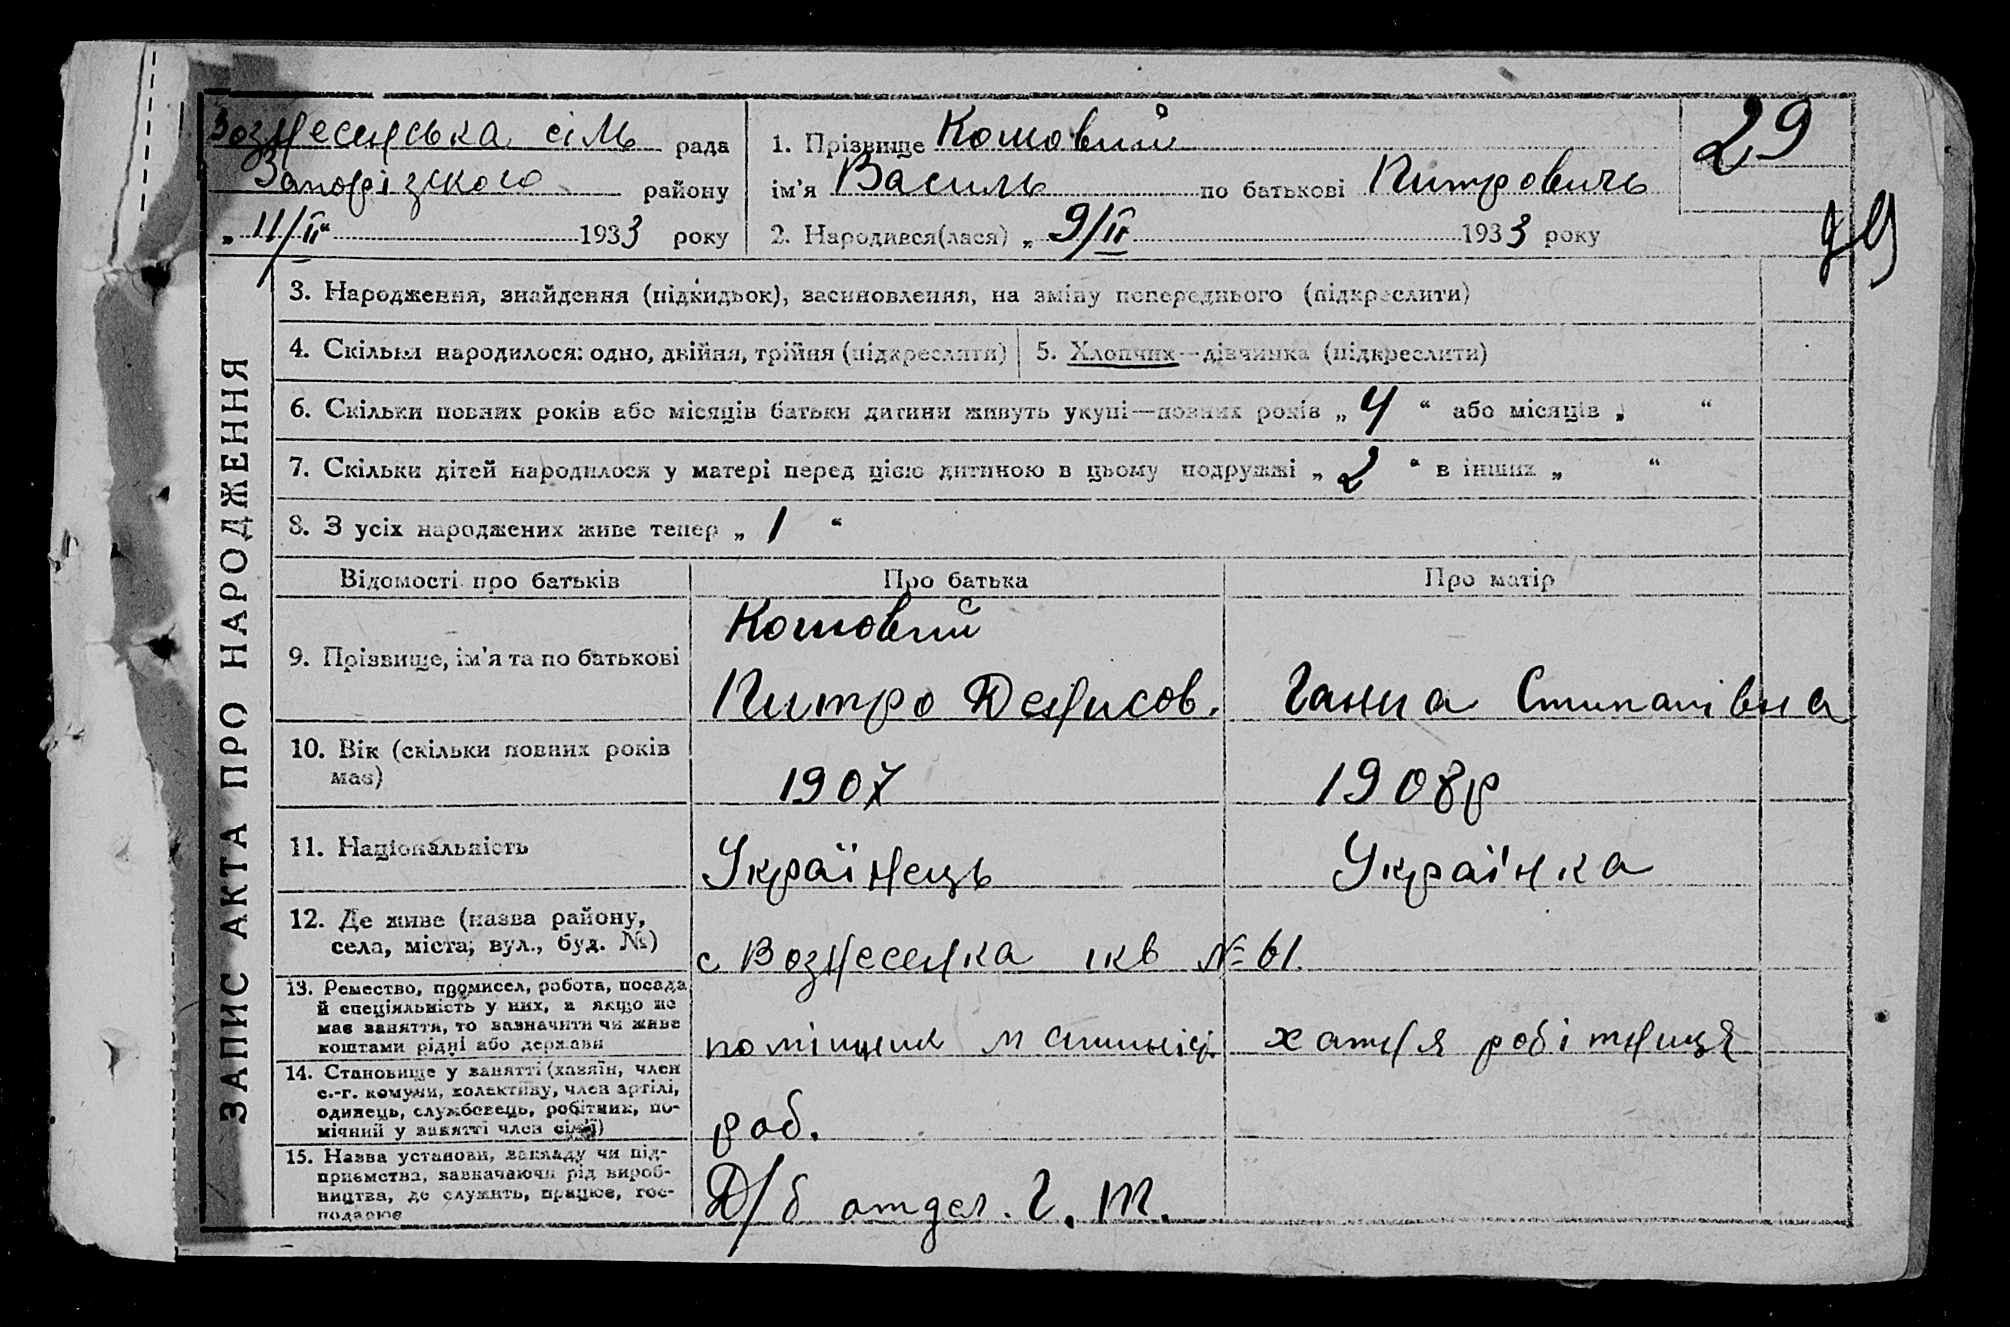 Вознесенська сіль рада
Запорізького району
„ 11/II “ 1933 року
1. Прізвище Кошовий
ім’я Василь по батькові Питрович
2. Народився(лася) „ 9/II 1933 року
29
29
ЗАПИС АКТА ПРО НАРОДЖЕННЯ
3. Народження, знайдення (підкидьок), засиновлення, на зміну попереднього (підкреслити)
4. Скільки народилося: одно, двійня, трійня (підкреслити) 5. Хлопчик—дівчинка (підкреслити)
6. Скільки повних років або місяців батьки дитини живуть укупі—повних років „ 4 “ або місяців „ “
7. Скільки дітей народилося у матері перед цією дитиною в цьому подружжі „ 2 “ в інших „ “
8. З усіх народжених живе тепер „ 1 “
Відомості про батьків Про батька Про матір
9. Прізвище, ім’я та по батькові
Кошовий
Питро Денисов. Ганна Стипанівна
10. Вік (скільки повних років
має)
1907 1908р
11. Національність
Українець Українка
12. Де живе (назва району,
села, міста; вул., буд. №)
с Вознесенка 1кв № 61.
13. Ремество, промисел, робота, посада
й спеціяльність у них, а якщо не
має заняття, то зазначити чи живе
коштами рідні або держави
помішник машиніс. хатня робітниця
14. Становище у занятті (хазяїн, член
с.-г. комуни, колективу, член артілі,
одинець, службовець, робітник, по-
мічний у занятті член сім’ї)
роб.
15. Назва установи, закладу чи під-
приємства, зазначаючи рід вироб-
ництва, де служить, працює, гос-
подарює
Д/б отдел. Г. М.